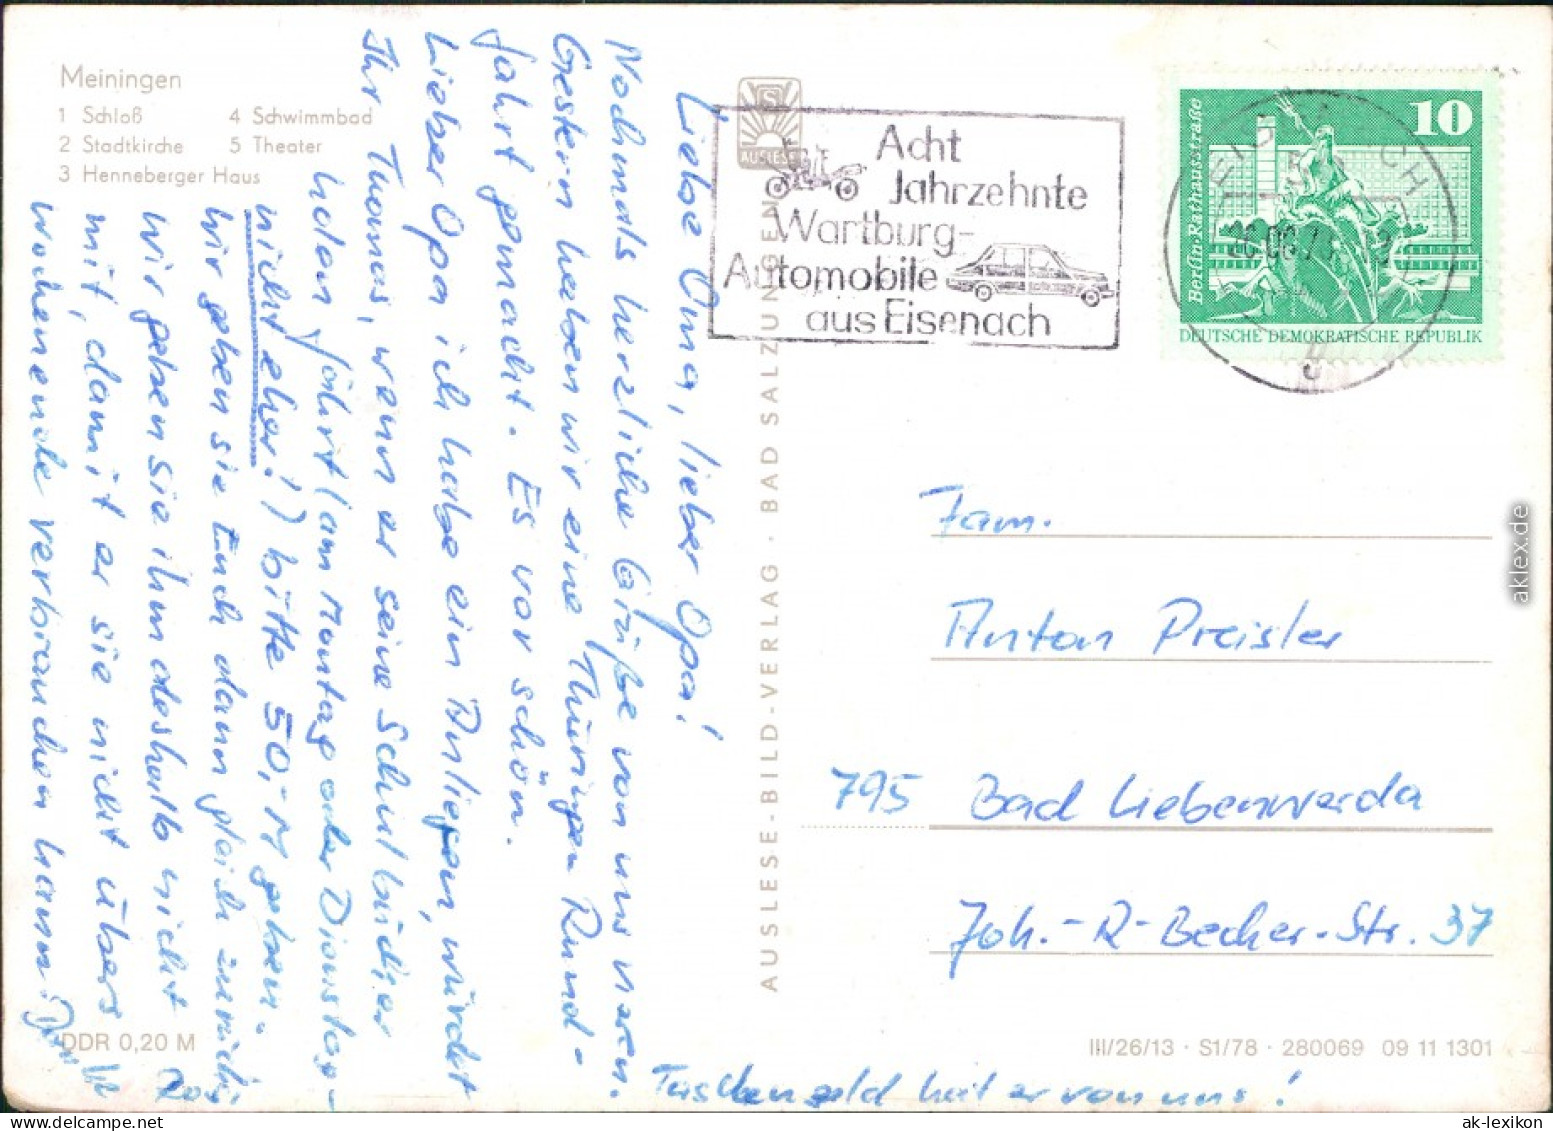 Meiningen
1 Schloß
2 Stadtkirche
3 Henneberger Haus
4 Schwimmbad
5 Theater
AUSLESE
Acht
Jahrzehnte
Wartburg-
Automobile
aus Eisenach
10
Berlin·Rathausstraße
DEUTSCHE DEMOKRATISCHE REPUBLIK
Liebe Oma, lieber Opa!
Nochmals herzliche Grüße von uns vieren.
Gestern haben wir eine Thüringen Rund-
fahrt gemacht. Es war schön.
Lieber Opa ich habe ein Anliegen, würdet
Ihr Thomas, wenn er seine Schulbücher
holen fährt (am Montag oder Dienstag -
nicht eher!) bitte 50,-M geben.
Wir geben sie Euch dann gleich zurück.
Wir geben sie ihm deshalb nicht
mit, damit er sie nicht übers
Wochenende verbrauchen kann!
Taschengeld hat er von uns!
AUSLESE-BILD-VERLAG · BAD SALZUNGEN
Fam.
Anton Preisler
795 Bad Liebenwerda
Joh.-R-Becher-Str. 37
DDR 0,20 M
III/26/13 · S1/78 · 280069 09 11 1301
aklex.de
ak-lexikon